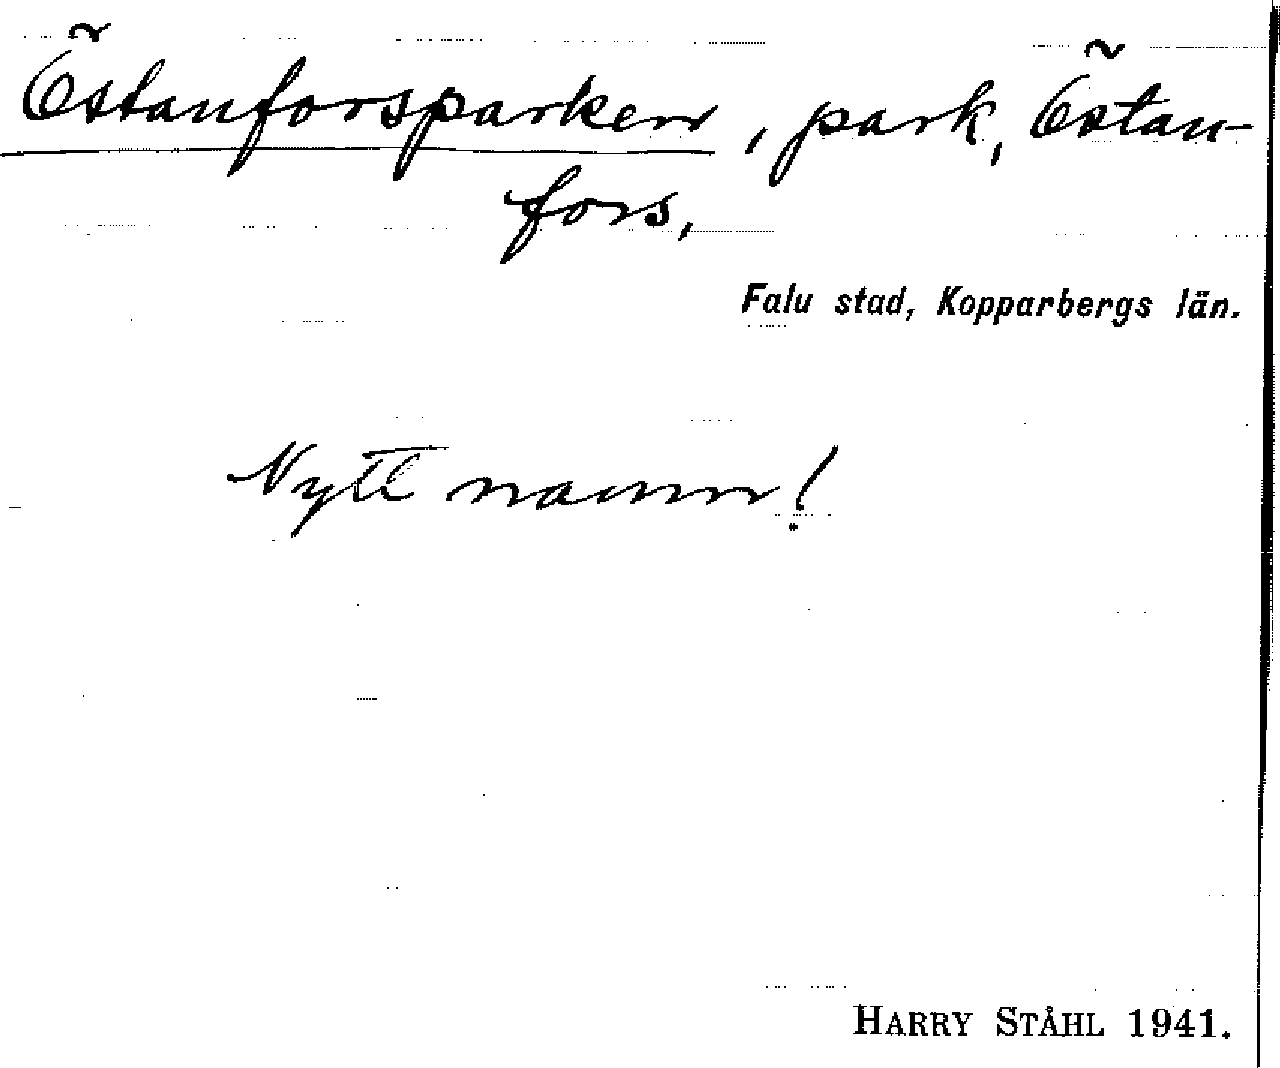 Östanforsparken, park, Östan-
fors,
Falu stad, Kopparbergs län.
Nytt namn!
HARRY STÅHL 1941.